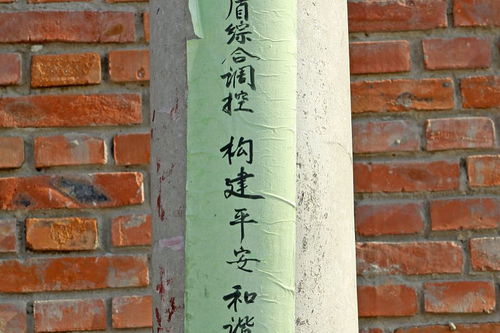 盾综合调控 构建平安 和谐